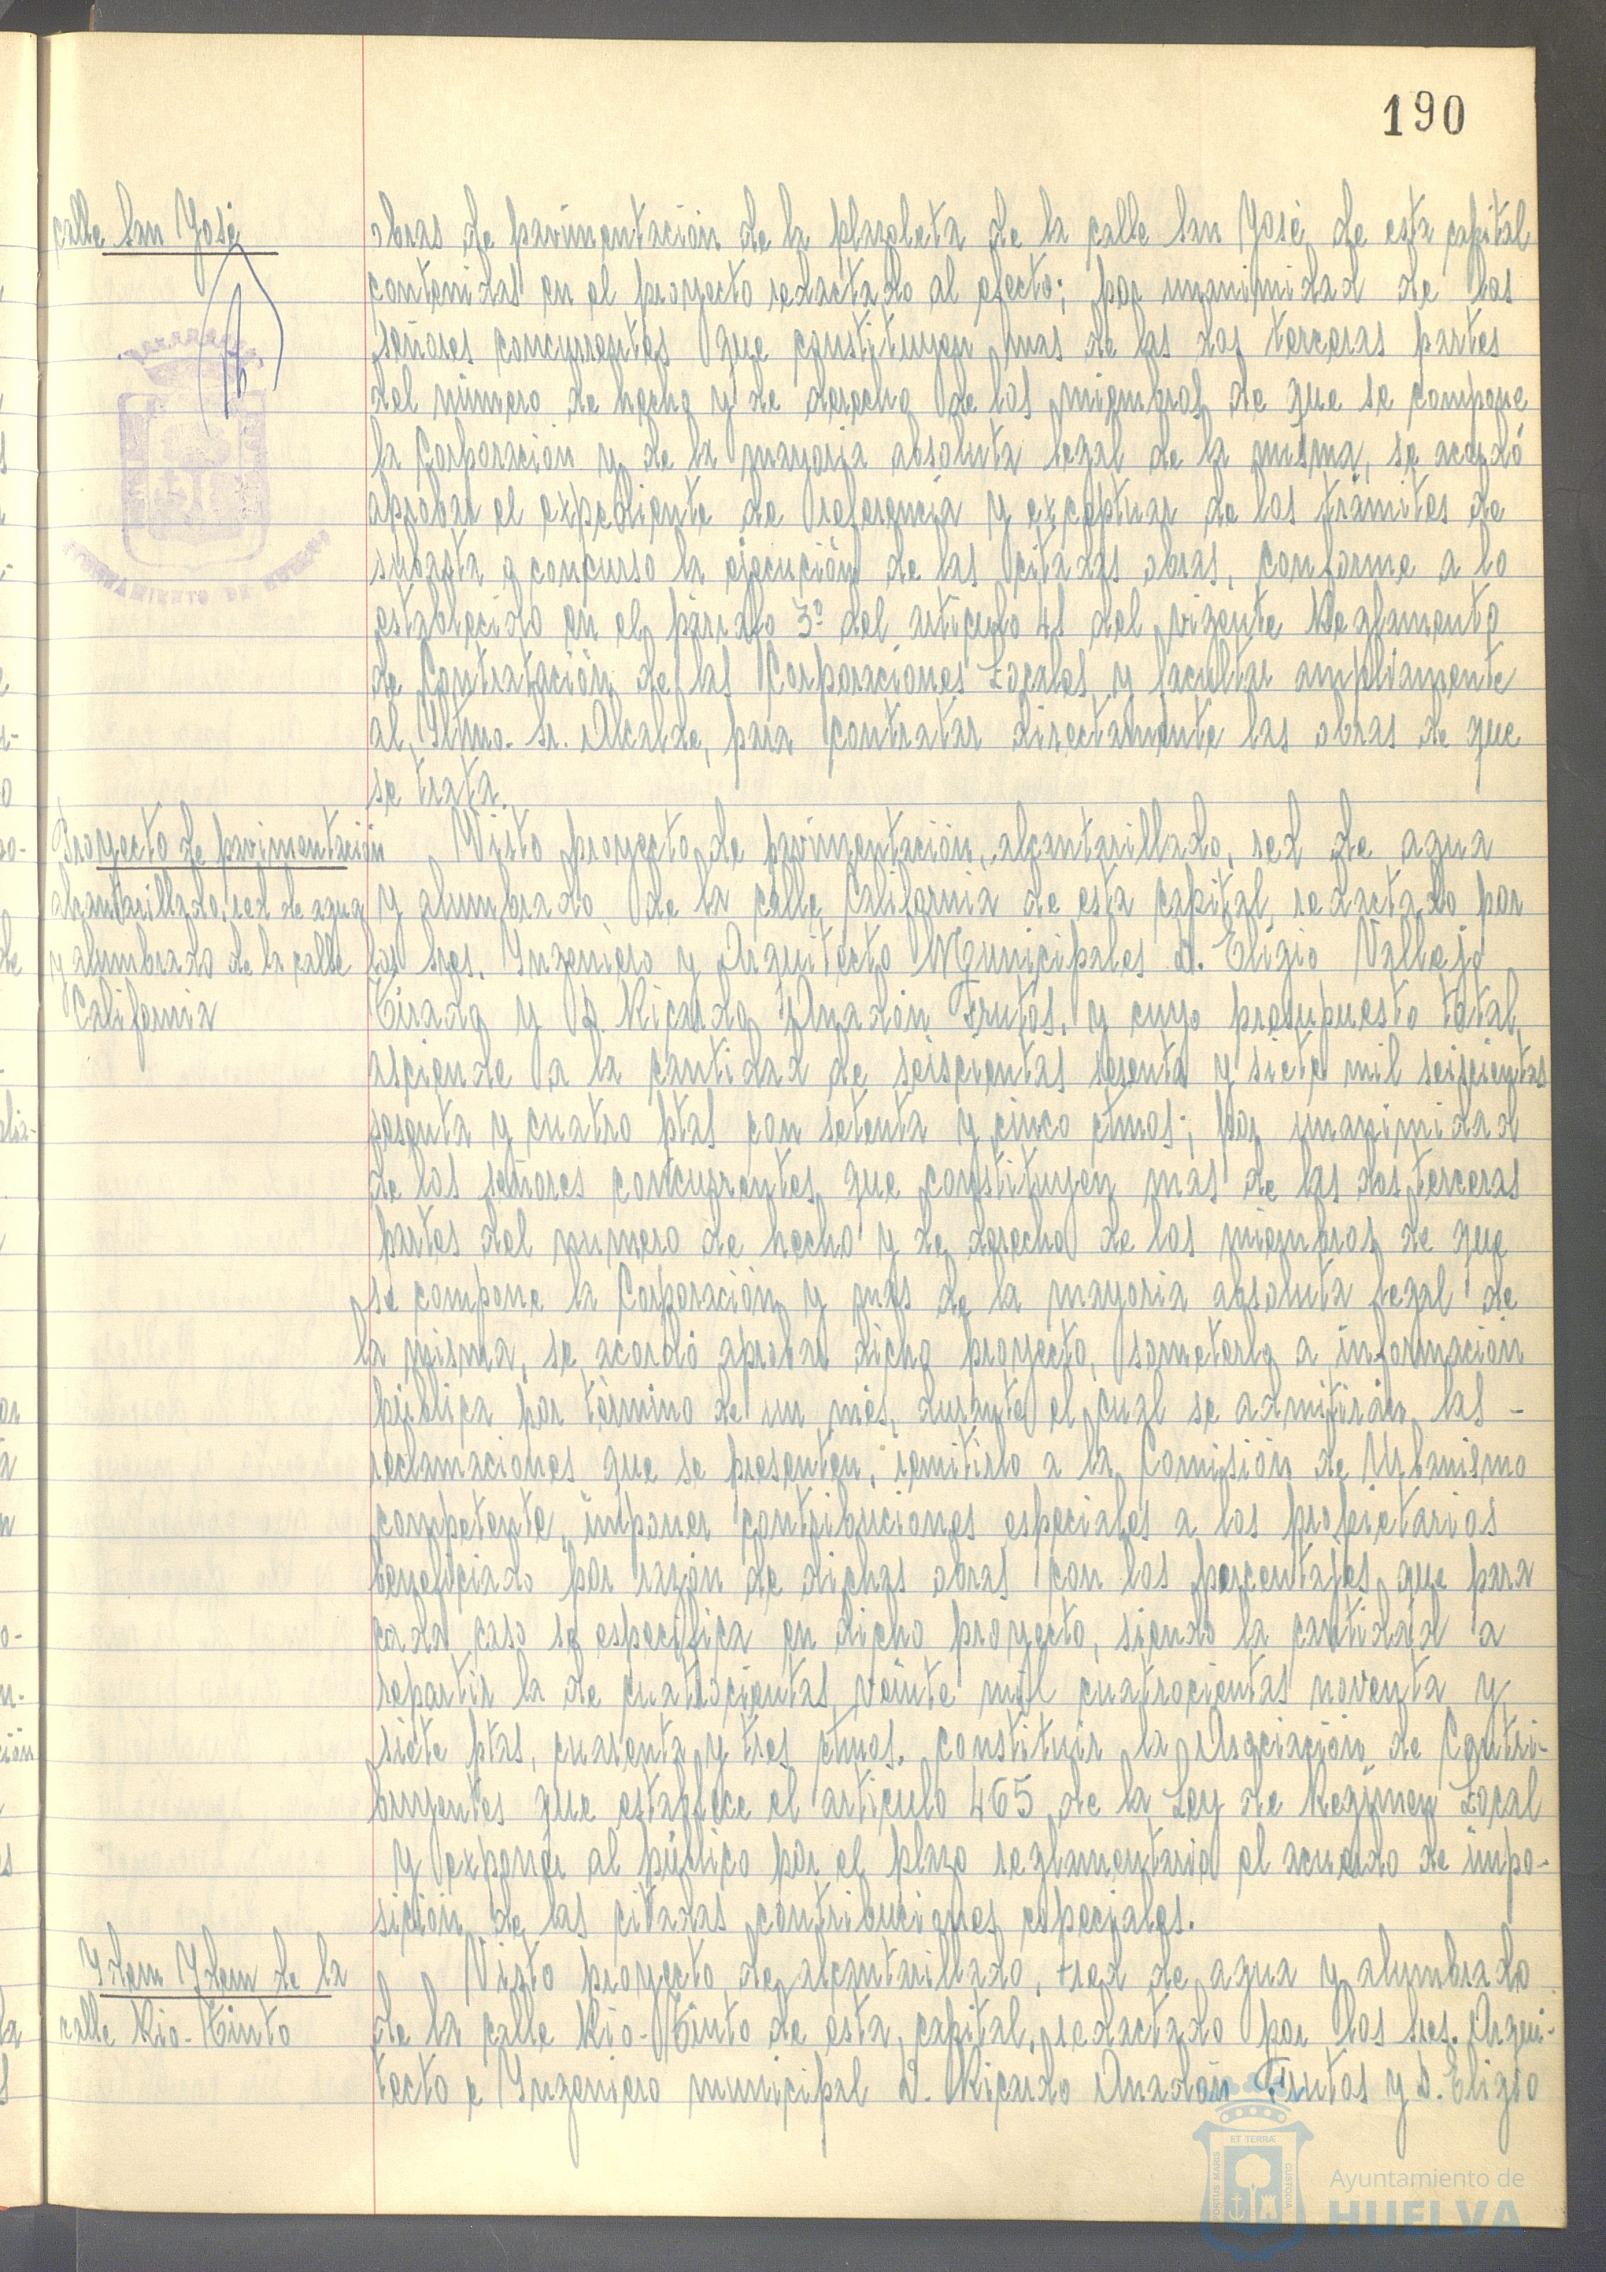 190
calle San José
obras de pavimentación de la plazoleta de la calle San José de esta capital
contenidas en el proyecto redactado al efecto; por unanimidad de los
señores concurrentes que constituyen mas de las dos terceras partes
del número de hecho y de derecho de los miembros de que se compone
la Corporación y de la mayoria absoluta legal de la misma, se acordó
aprobar el expediente de referencia y exceptuar de los trámites de
subasta o concurso la ejecución de las citadas obras, conforme a lo
establecido en el párrafo 3º del artículo 41 del vigente Reglamento
de Contratación de las Corporaciones Locales y facultar ampliamente
al Iltmo. Sr. Alcalde, para contratar directamente las obras de que
se trata.
AYUNTAMIENTO DE HUELVA
Proyecto de pavimentación
alcantarillado, red de agua
y alumbrado de la calle
California
Visto proyecto de pavimentación, alcantarillado, red de agua
y alumbrado de la calle California de esta capital, redactado por
los Sres. Ingeniero y Arquitecto Municipales D. Eligio Vallejo
Tirado y D. Ricardo Anadón Frutos, y cuyo presupuesto total
asciende a la cantidad de seiscientas sesenta y siete mil seiscientas
sesenta y cuatro ptas con setenta y cinco ctmos; por unanimidad
de los señores concurrentes que constituyen mas de las dos terceras
partes del numero de hecho y de derecho de los miembros de que
se compone la Corporación y mas de la mayoria absoluta legal de
la misma, se acordó aprobar dicho proyecto, someterlo a información
pública por término de un mes, durante el cual se admitirán las -
reclamaciones que se presenten, remitirlo a la Comisión de Urbanismo
competente, imponer contribuciones especiales a los propietarios
beneficiado por razón de dichas obras con los porcentajes que para
cada caso se especifica en dicho proyecto, siendo la cantidad a
repartir la de cuatrocientas veinte mil cuatrocientas noventa y
siete ptas, cuarenta y tres ctmos. constituir la Asociación de Contri-
buyentes que establece el artículo 465 de la Ley de Regimen Local
y exponer al público por el plazo reglamentario el acuerdo de impo-
sición de las citadas contribuciones especiales.
Idem Idem de la
calle Rio-Tinto
Visto proyecto de alcantarillado, red de agua y alumbrado
de la calle Rio-Tinto de esta capital, redactado por los Sres. Arqui-
tecto e Ingeniero municipal D. Ricardo Anadón Frutos y D. Eligio
PORTUS MARIS ET TERRÆ CUSTODIA
Ayuntamiento de
HUELVA